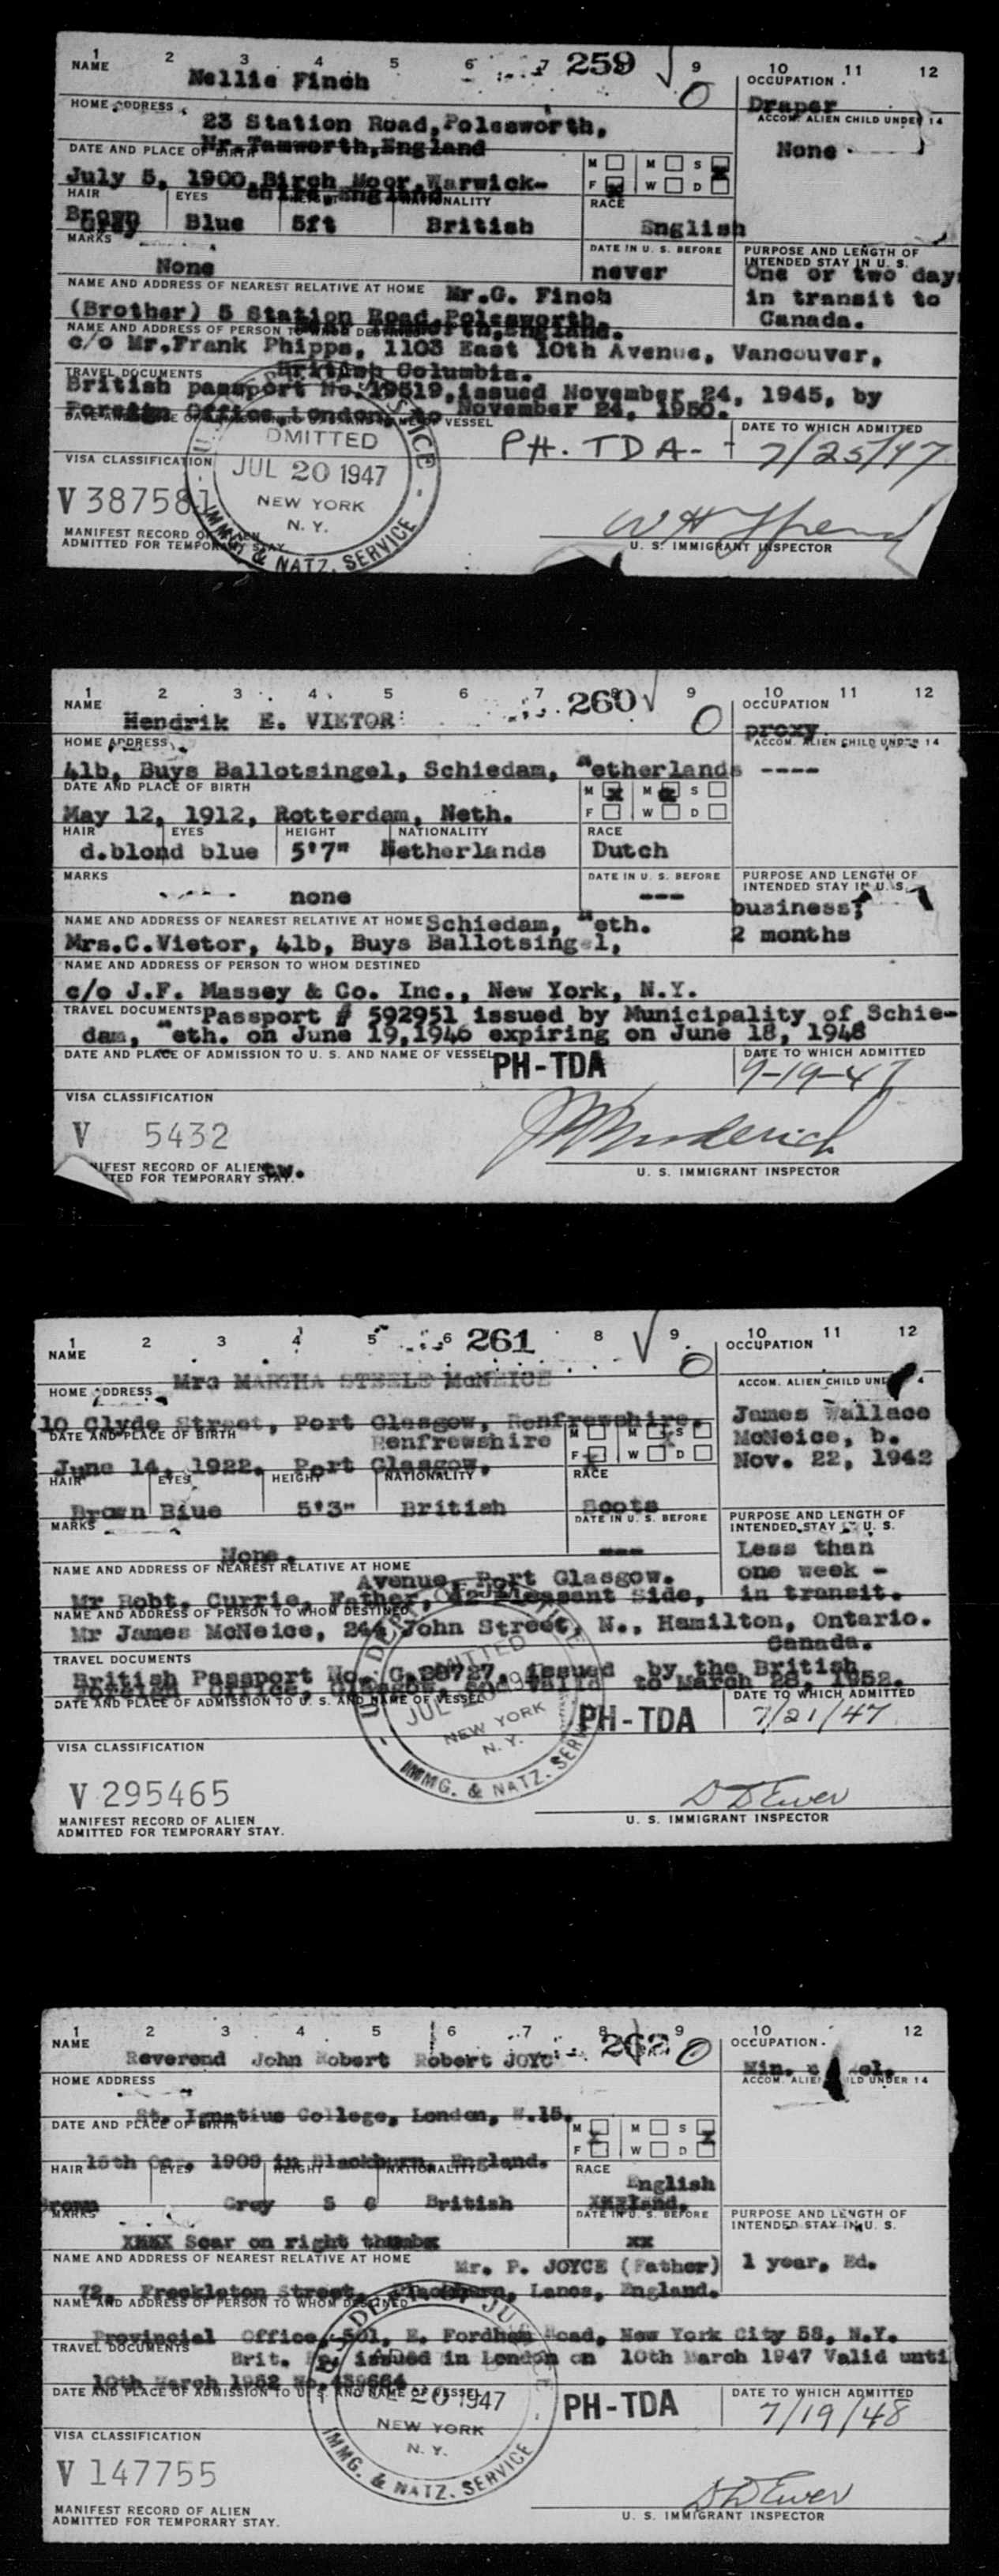 1 2 3 4 5 6 7 259 9 10 11 12
NAME Nellie Finch O OCCUPATION
Draper
HOME ADDRESS 23 Station Road, Polesworth, ACCOM. ALIEN CHILD UNDER 14
Nr. Tamworth, England None
DATE AND PLACE OF BIRTH M M S
July 5, 1900, Birch Moor, Warwick- F W D
shire England
HAIR EYES NATIONALITY RACE
Brown Gray Blue 5ft British English
MARKS DATE IN U. S. BEFORE PURPOSE AND LENGTH OF INTENDED STAY IN U. S.
None never One or two days
NAME AND ADDRESS OF NEAREST RELATIVE AT HOME Mr. G. Finch in transit to
(Brother) 5 Station Road, Polesworth, Canada.
NAME AND ADDRESS OF PERSON TO WHOM DESTINED England.
c/o Mr. Frank Phipps, 1103 East 10th Avenue, Vancouver,
British Columbia.
TRAVEL DOCUMENTS
British passport No. 19519, issued November 24, 1945, by
Foreign Office, London, to November 24, 1950.
VESSEL DATE TO WHICH ADMITTED
PH. TDA- 7/25/47
ADMITTED
JUL 20 1947
NEW YORK
N. Y.
IMMG. & NATZ. SERVICE
VISA CLASSIFICATION
V 387581
MANIFEST RECORD OF ALIEN
ADMITTED FOR TEMPORARY STAY
U. S. IMMIGRANT INSPECTOR
1 2 3 4 5 6 7 260 9 10 11 12
NAME Hendrik E. VIETOR O OCCUPATION
proxy
HOME ADDRESS ACCOM. ALIEN CHILD UNDER 14
41b, Buys Ballotsingel, Schiedam, Netherlands ----
DATE AND PLACE OF BIRTH M M S
May 12, 1912, Rotterdam, Neth. F W D
HAIR EYES HEIGHT NATIONALITY RACE
d.blond blue 5'7" Netherlands Dutch
MARKS DATE IN U. S. BEFORE PURPOSE AND LENGTH OF INTENDED STAY IN U. S.
none --- business;
NAME AND ADDRESS OF NEAREST RELATIVE AT HOME Schiedam, Neth. 2 months
Mrs.C.Vietor, 41b, Buys Ballotsingel,
NAME AND ADDRESS OF PERSON TO WHOM DESTINED
c/o J.F. Massey & Co. Inc., New York, N.Y.
TRAVEL DOCUMENTS Passport # 592951 issued by Municipality of Schie-
dam, Neth. on June 19,1946 expiring on June 18, 1948
DATE AND PLACE OF ADMISSION TO U. S. AND NAME OF VESSEL PH-TDA DATE TO WHICH ADMITTED
9-19-47
VISA CLASSIFICATION
V 5432
MANIFEST RECORD OF ALIEN tw.
TED FOR TEMPORARY STAY.
U. S. IMMIGRANT INSPECTOR
1 2 3 4 5 6 261 8 9 10 11 12
NAME O OCCUPATION
Mrs MARTHA STEELE McNEICE
HOME ADDRESS ACCOM. ALIEN CHILD UNDER 14
10 Clyde Street, Port Glasgow, Renfrewshire. James Wallace
DATE AND PLACE OF BIRTH Renfrewshire M M S McNeice, b.
June 14, 1922, Port Glasgow. F W D Nov. 22, 1942
HAIR EYES HEIGHT NATIONALITY RACE
Brown Blue 5'3" British Scots
MARKS DATE IN U. S. BEFORE PURPOSE AND LENGTH OF INTENDED STAY IN U. S.
None. --- Less than
NAME AND ADDRESS OF NEAREST RELATIVE AT HOME one week -
Avenue, Port Glasgow. in transit.
Mr Robt. Currie, Father, 42 Pleasant Side,
NAME AND ADDRESS OF PERSON TO WHOM DESTINED
Mr James McNeice, 244 John Street, N., Hamilton, Ontario.
Canada.
TRAVEL DOCUMENTS
British Passport No. C.28727, issued by the British
Glasgow, and valid to March 28, 1952.
DATE AND PLACE OF ADMISSION TO U. S. AND NAME OF VESSEL DATE TO WHICH ADMITTED
PH-TDA 7/21/47
ADMITTED
JUL
NEW YORK
N. Y.
IMMG. & NATZ. SERV
VISA CLASSIFICATION
V 295465
MANIFEST RECORD OF ALIEN
ADMITTED FOR TEMPORARY STAY.
D D Ewer
U. S. IMMIGRANT INSPECTOR
1 2 3 4 5 6 7 8 262 9 10 12
NAME O OCCUPATION
Reverend John Robert Robert JOYC Min.
HOME ADDRESS ACCOM. ALIEN CHILD UNDER 14
St. Ignatius College, London, N.15.
DATE AND PLACE OF BIRTH M M S
15th 1909 in Blackburn, England. F W D
HAIR EYES HEIGHT NATIONALITY RACE
English
Brown Grey 5 6 British
MARKS DATE IN U. S. BEFORE PURPOSE AND LENGTH OF INTENDED STAY IN U. S.
XXXX Scar on right thumb xx
NAME AND ADDRESS OF NEAREST RELATIVE AT HOME Mr. P. JOYCE (Father) 1 year, Ed.
72, Freckleton Street, Blackburn, Lancs, England.
NAME AND ADDRESS OF PERSON TO WHOM DESTINED
Provincial Office, 501, E. Fordham Road, New York City 58, N.Y.
TRAVEL DOCUMENTS Brit. issued in London on 10th March 1947 Valid unti
10th March 1952 No. 439664
DATE AND PLACE OF ADMISSION TO U. S. AND NAME OF VESSEL DATE TO WHICH ADMITTED
PH-TDA 7/19/48
20 1947
NEW YORK
N. Y.
IMMG. & NATZ. SERVICE
VISA CLASSIFICATION
V 147755
MANIFEST RECORD OF ALIEN
ADMITTED FOR TEMPORARY STAY.
D D Ewer
U. S. IMMIGRANT INSPECTOR